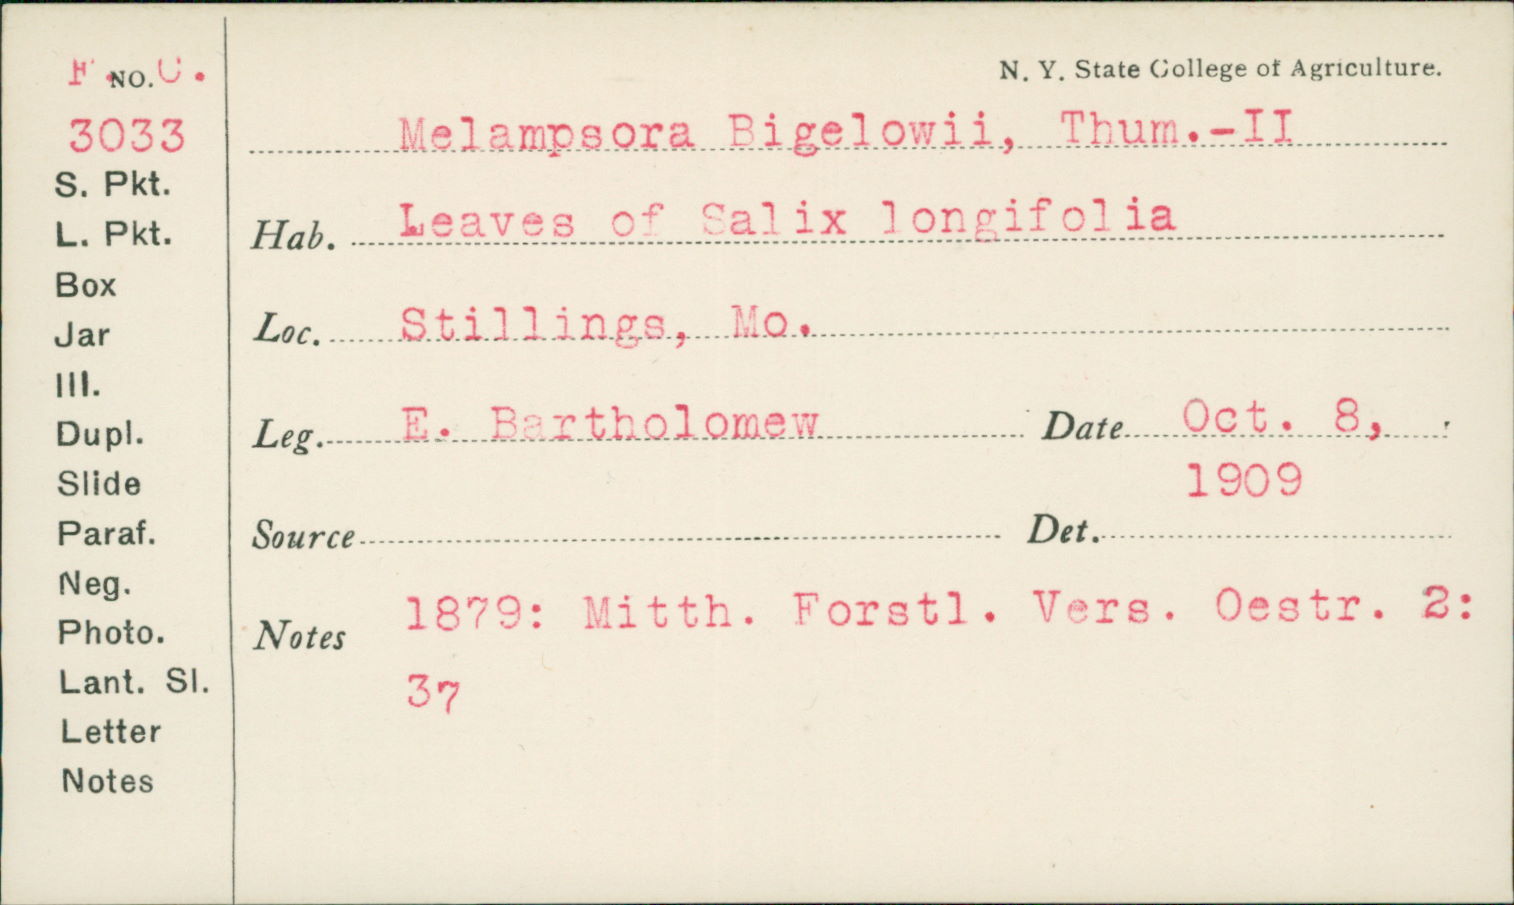 F. NO. C.
3033
S. Pkt.
L. Pkt.
Box
Jar
Ill.
Dupl.
Slide
Paraf.
Neg.
Photo.
Lant. Sl.
Letter
Notes
N. Y. State College of Agriculture.
Melampsora Bigelowii, Thum.-II
Hab. Leaves of Salix longifolia
Loc. Stillings, Mo.
Leg. E. Bartholomew Date Oct. 8,
1909
Source Det.
Notes 1879: Mitth. Forstl. Vers. Oestr. 2:
37